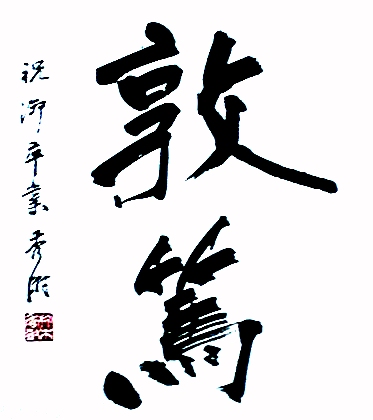 敦篤
祝御卒業 秀